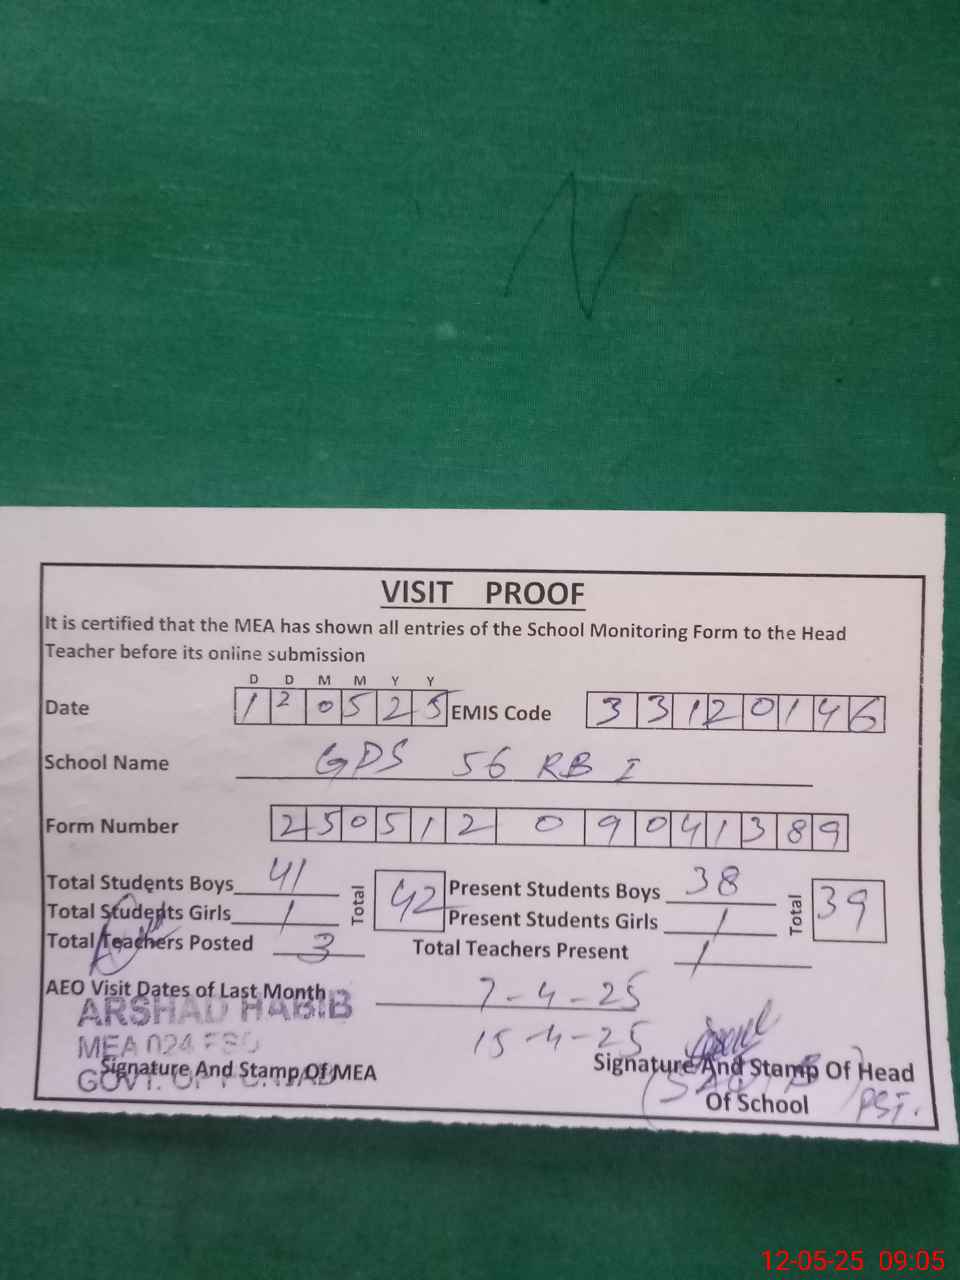 N
VISIT PROOF
It is certified that the MEA has shown all entries of the School Monitoring Form to the Head
Teacher before its online submission
D D M M Y Y
Date 1 2 0 5 2 5 EMIS Code 3 3 1 2 0 1 4 6
School Name GPS 56 RB I
Form Number 2 5 0 5 1 2 0 9 0 4 1 3 8 9
Total Students Boys 41 Total 42 Present Students Boys 38 Total 39
Total Students Girls 1 Present Students Girls 1
Total Teachers Posted 3 Total Teachers Present 1
AEO Visit Dates of Last Month 7-4-25
ARSHAD HABIB
15-4-25
MEA 024 FSD
Signature And Stamp Of MEA Signature And Stamp Of Head
GOVT. OF PUNJAB
Of School PST.
12-05-25 09:05